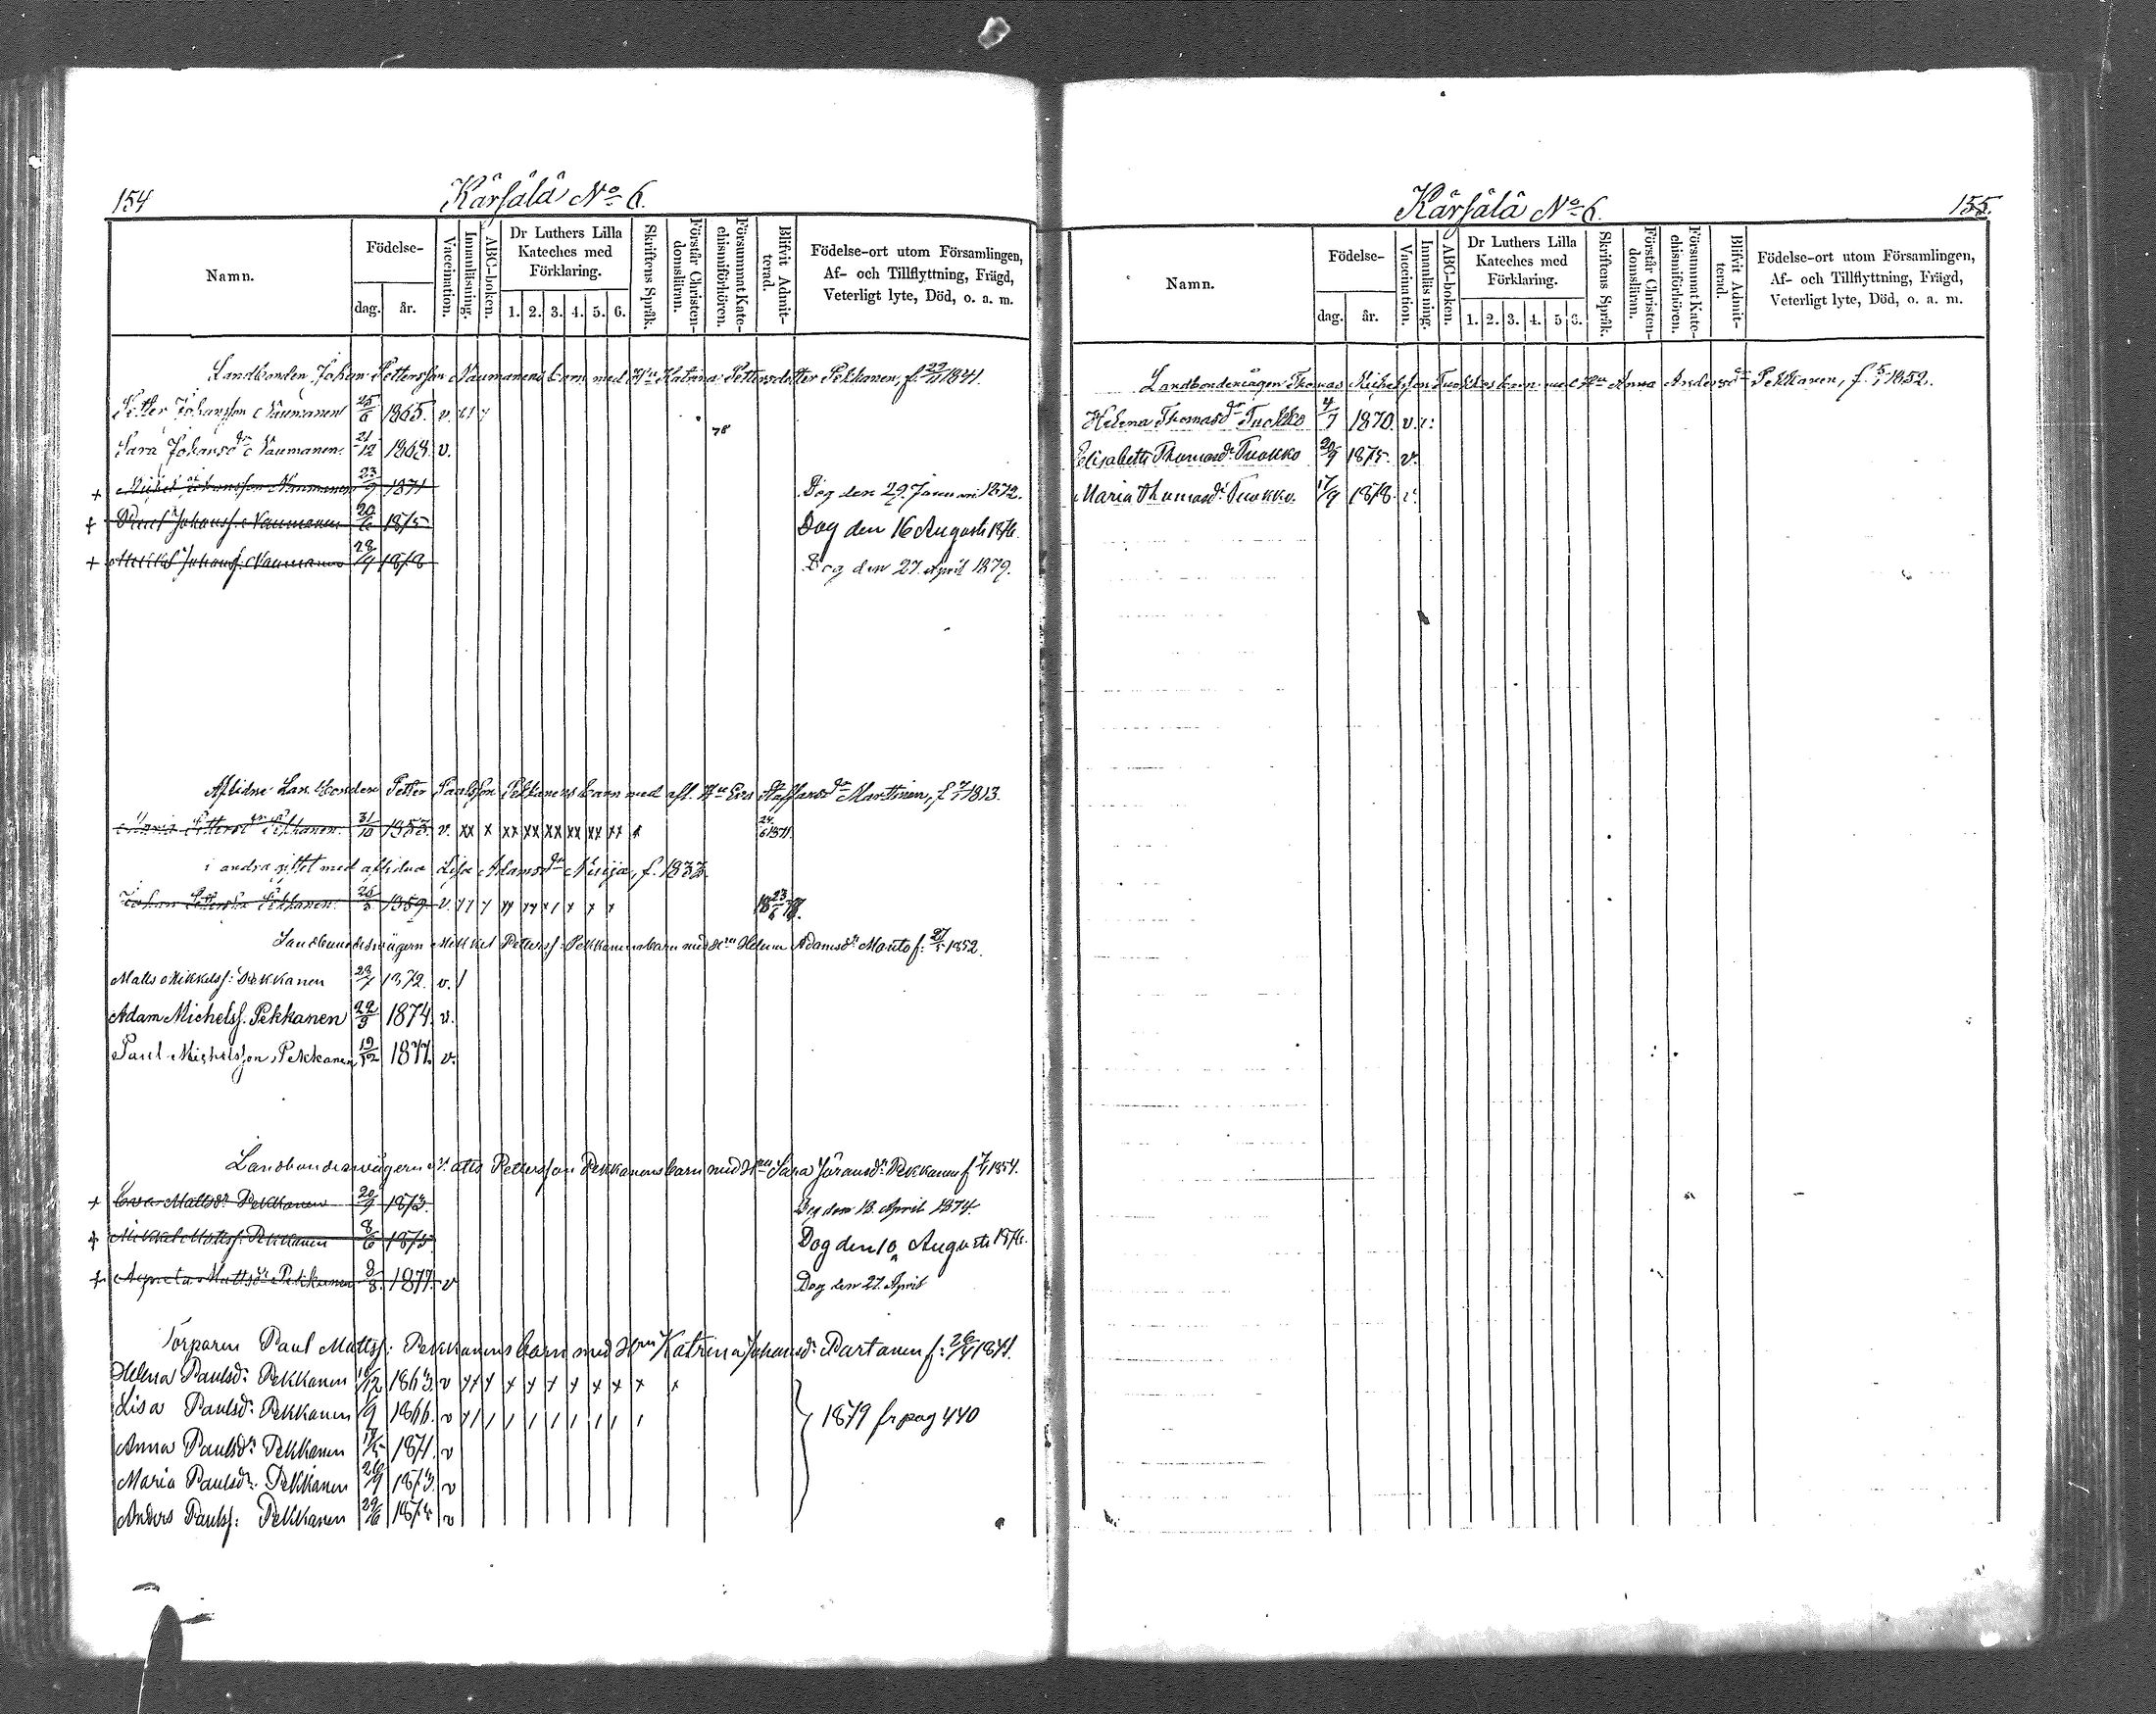 154
Kärsälä No 6.
Namn.
Födelse-
dag.
år.
Vaccination.
Innanläsning.
ABC-boken.
Dr Luthers Lilla
Kateches med
Förklaring.
1. 2. 3. 4. 5. 6.
Skriftens Språk.
Förstår Christen-
domsläran.
Försummat Kate-
chismiförhören.
Blifvit Admit-
terad.
Födelse-ort utom Församlingen,
Af- och Tillflyttning, Frägd,
Veterligt lyte, Död, o. a. m.
Landbonden Johan Pettersson Naumanens barn med Hu Katrina Pettersdotter Pekkanen, f. 22/11 1841.
Petter Johansson Naumanen 25/6 1865. v.
78
Sara Johansdr Naumanen 21/12 1868 v.
+ Michel Johansson Naumanen 23/9 1871 Dog den 29. Januari 1872.
+ Paul Johansf. Naumanen 20/6 1875 Dog den 16 Augusti 1876.
+ Mikkel Johansf. Naumanen 28/9 1878 Dog den 27. April 1879.
Aflidne Landbonden Petter Paulsson Pekkanens barn med afl. Hu Eva Staffansdr Marttinen, f. 1813.
Maria Pettersdr Pekkanen. 31/10 1853. v. xx x xx xx xx xx xx xx x 24/6 1871.
i andra giftet med aflidna Lisa Adamsdr f. 1833.
Johan Pettersson Pekkanen. 1859. v. 18 23/6 78.
Landbondesvägern Mikkel Pettersf: Pekkanens barn med Hu Helena Adamsdr Manto f: 27/5 1852.
Matts Mikkelsf: Pekkanen 23/7 1872. v. /
Adam Michelsf. Pekkanen 22/9 1874. v.
Paul Michelsson Pekkanen 19/12 1877. v.
Landbondesvägern Matts Pettersson Pekkanens barn med Hu Sara Göransdr Pekkanen f 1854.
+ Eva Mattsdr Pekkanen 20/9 1873. Dog den 18. April 1874.
+ Mikkel Mattsf: Pekkanen 8/6 1875 Dog den 10 Augusti 1876.
+ Agneta Mattsdr Pekkanen 8/8 1877. v Dog den 27. April
Torparen Paul Mattsf: Pekkanens barn med Hu Katrina Johansdr Partanen f: 26/4 1841.
Helena Paulsdr Pekkanen 1863. v
Lisa Paulsdr: Pekkanen 1866. v 1879 fr pag 440
Anna Paulsdr Pekkanen 1871. v
Maria Paulsdr: Pekkanen 26/9 1873. v
Anders Paulsf: Pekkanen 29/6 v
155.
Kärsälä No 6.
Namn.
Födelse-
dag.
år.
Vaccination.
Innanläsning.
ABC-boken.
Dr Luthers Lilla
Kateches med
Förklaring.
1. 2. 3. 4. 5 6.
Skriftens Språk.
Förstår Christen-
domsläran.
Försummat Kate-
chismiförhören.
Blifvit Admit-
terad.
Födelse-ort utom Församlingen,
Af- och Tillflyttning, Frägd,
Veterligt lyte, Död, o. a. m.
Landbondemågen Thomas Michelsson Tuokkos barn med Hu Anna Andersdr Pekkanen, f. 5/1 1852.
Helena Thomasdr Tuokko 4/7 1870. v.
Elisabeth Thomasdr Tuokko 1875. v.
Maria Thomasdr Tuokko. 17/9 1878. v.